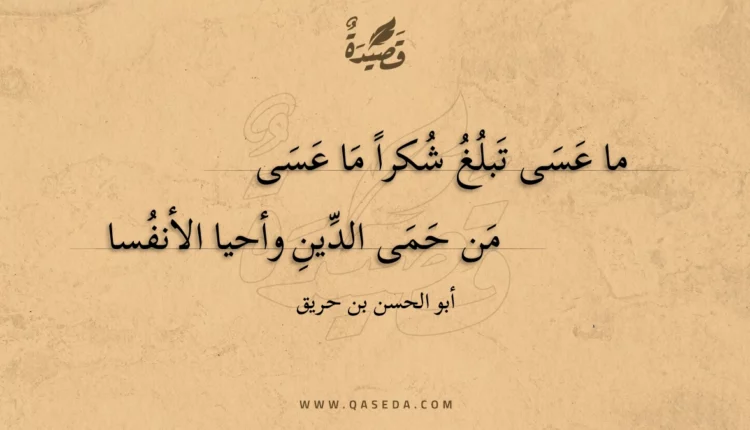 قَصِيدَةٌ
ما عَسَى تَبلُغُ شُكراً مَا عَسَى
مَن حَمَى الدِّينِ وأحيا الأنفُسا
أبو الحسن بن حريق
WWW.QASEDA.COM